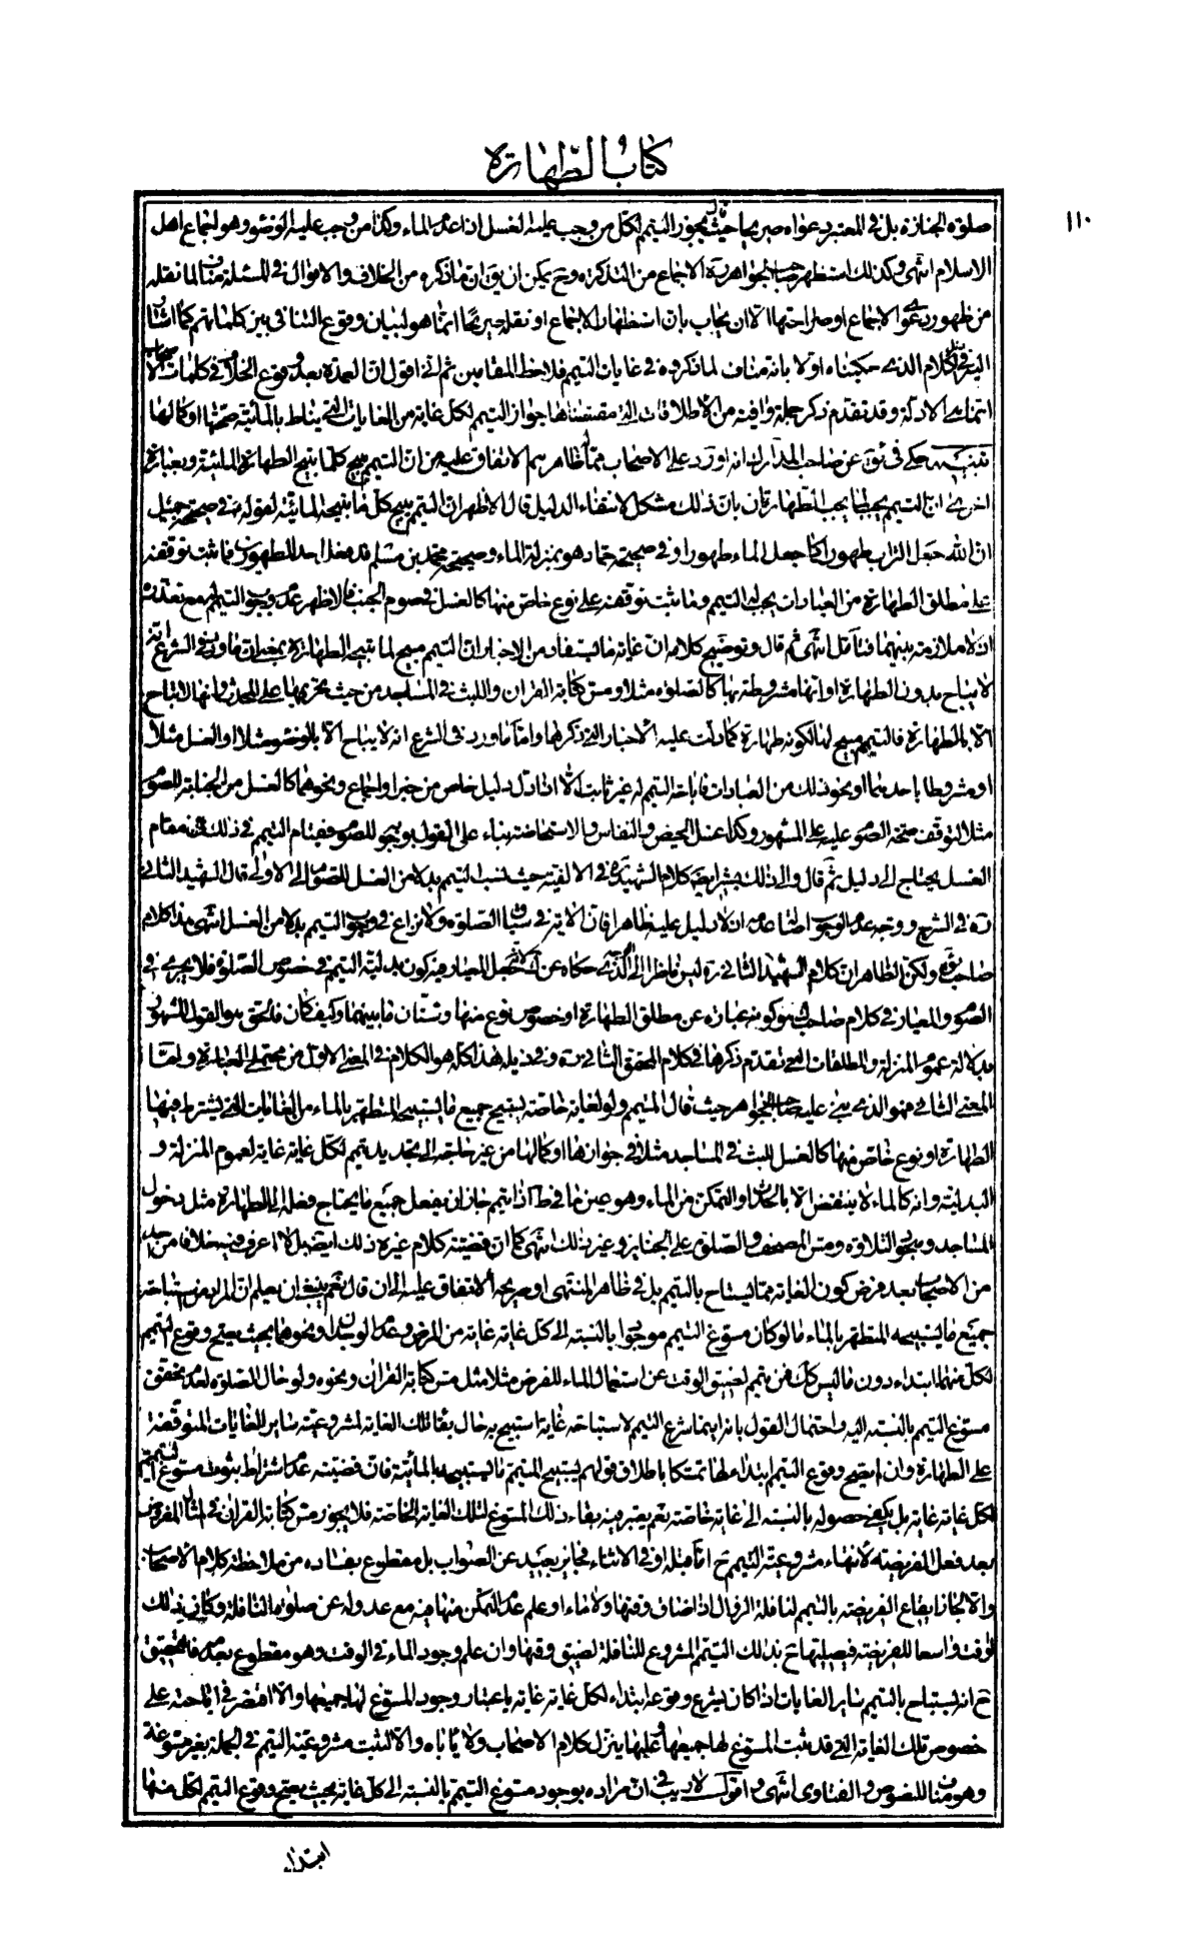 كتاب الطهارة
١١٠
صلوة الجنازة بل في المعتبر دعواه صريحا حيث قال يجوز التيمم لكل من وجب عليه الغسل اذا عدم الماء وكذا من وجب عليه الوضوء وهو اجماع اهل
الاسلام انتهى وكذلك استظهر صاحب الجواهر ره الاجماع من التذكرة وح يمكن ان يق ان ما ذكره من الخلاف والاقوال في المسئلة مناف لما نقله
من ظهور دعوى الاجماع او صراحتها الا ان يجاب بان استظهار الاجماع او نقله صريحا انما هو لبيان وقوع التنافي بين كلماتهم كما اشار
اليه في الكلام الذي حكيناه اولا بانه مناف لما ذكروه في غايات التيمم فلاحظ المقامين ثم اني اقول ان العمدة بعد وقوع الخلاف في كلمات الاصحاب
انما هي الادلة وقد تقدم ذكر جملة وافية من الاطلاقات التي مقتضاها جواز التيمم لكل غاية من الغايات التي يناط بالمائية صحتها او كمالها
تنبيه حكى في ئق عن صاحب المدارك انه اورد على الاصحاب مما ظاهرهم الاتفاق عليه من ان التيمم يبيح كلما تبيح الطهارة المائية وبعبارة
اخرى ان التيمم يجب لما يجب له الطهارتان بان ذلك مشكل لانتفاء الدليل قال الاظهر ان التيمم يبيح كل ما تبيحه المائية لقوله ع في صحيحة جميل
ان الله جعل التراب طهورا كما جعل الماء طهورا وفي صحيحة حماد هو بمنزلة الماء وصحيحة محمد بن مسلم قد فعل احد الطهورين فما ثبت توقفه
على مطلق الطهارة من العبادات يجب له التيمم وما ثبت توقفه على نوع خاص منها كالغسل في صوم الجنب فالاظهر عدم وجوب التيمم مع تعذره
اذ لا ملازمة بينهما فتامل انتهى ثم قال وتوضيح كلامه ان غاية ما يستفاد من الاخبار ان التيمم مبيح لما تبيحه الطهارة بمعنى ان ما ورد في الشرع انه
لا يباح بدون الطهارة او انها مشروطة بها كالصلوة مثلا ومس كتابة القران واللبث في المساجد من حيث تحريمها على المحدث وانها لا تباح
الا بالطهارة فالتيمم مبيح لها لكونه طهارة كما دلت عليه الاخبار التي ذكرها واما ما ورد في الشرع انه لا يباح الا بالوضوء مثلا او الغسل مثلا
او مشروطا باحدهما او نحو ذلك من العبادات فاباحة التيمم له غير ثابت الا اذا دل دليل خاص من خبر او اجماع ونحوهما كالغسل من الجنابة للصوم
مثلا لتوقف صحة الصوم عليه على المشهور وكذا غسل الحيض والنفاس والاستحاضة بناء على القول بوجوبه للصوم فقيام التيمم في ذلك مقام
الغسل يحتاج الى دليل ثم قال والى ذلك يشير ايضا كلام الشهيد ره في الالفية حيث نسب التيمم بدلا من الغسل للصوم الى الاولى قال الشهيد الثاني
ره في الشرح ووجه عدم الوجوب اصالة عدمه اذ لا دليل عليه ظاهرا فان الاية في سياق الصلوة ولا نزاع في وجوب التيمم بدلا من الغسل انتهى هذا كلام
صاحب ئق ولكن الظاهر ان كلام الشهيد الثاني ره ليس ناظرا الى الذي حكاه عن المدارك لجعل المعيار فيه كون بدلية التيمم في خصوص الصلوة فلا يجري في
الصوم والمعيار في كلام صاحب المدارك هو كونه عبارة عن مطلق الطهارة او خصوص نوع منها وشتان ما بينهما وكيف كان فالحق هو القول المشهور
بدلالة عموم المنزلة والمطلقات التي تقدم ذكرها في كلام المحقق الثاني ره وفي ذيله هذا كله هو الكلام في المعنى الاول من محتملي العبارة واما
المعنى الثاني فهو الذي بنى عليه صاحب الجواهر حيث قال المتيمم ولو لغاية خاصة يستبيح جميع ما يستبيحه المتطهر بالماء من الغايات التي يشترط فيها
الطهارة او نوع خاص منها كالغسل للبث في المساجد مثلا في جوازها او كمالها من غير حاجة الى تجديد تيمم لكل غاية غاية لعموم المنزلة و
البدلية وانه كالماء لا ينتقض الا بالحدث او التمكن من الماء وهو عين ما في ط اذا تيمم جاز ان يفعل جميع ما يحتاج فعله الى الطهارة مثل دخول
المساجد وسجود التلاوة ومس المصحف والصلوة على الجنايز وغير ذلك انتهى كما ان قضية كلام غيره ذلك ايضا بل لا اعرف فيه خلافا من احد
من الاصحاب بعد فرض كون الغاية مما يستباح بالتيمم بل في ظاهر المنتهى او صريحه الاتفاق عليه الى ان قال نعم ينبغي ان يعلم ان المراد من استباحة
جميع ما يستبيحه المتطهر بالماء ما لو كان مسوغ التيمم موجودا بالنسبة الى كل غاية غاية من المرض وعدم الوجدان ونحوهما بحيث يصح وقوع التيمم
لكل منها ابتداء دون ما ليس كك فمن تيمم لضيق الوقت عن استعمال الماء للفرض مثلا مثل مس كتابة القران ونحوه ولو حال الصلوة لعدم تحقق
مسوغ التيمم بالنسبة اليه واحتمال القول بانه اينما شرع التيمم لاستباحة غاية استبيح به حال بقاء تلك الغاية المشروعية ساير الغايات المتوقفة
على الطهارة وان لم يصح وقوع التيمم ابتداء لها تمسكا باطلاق قولهم يستبيح المتيمم ما يستبيحه بالمائية فان قضيته عدم اشتراط ثبوت مسوغ التيمم
لكل غاية غاية بل يكفي حصوله بالنسبة الى غاية خاصة نعم يعتبر فيه بقاء ذلك المسوغ لتلك الغاية الخاصة فلا يجوز مس كتابة القران في المثال المفروض
بعد فعل الفريضة لانتهاء مشروعية التيمم ح اما قبله او في الاثناء فجايز بعيد عن الصواب بل مقطوع بفساده من ملاحظة كلام الاصحاب
والا لجاز ايقاع الفريضة بالتيمم لنافلة الزوال اذا ضاق وقتها ولا ماء او علم عدم التمكن منها فيه مع عدوله عن صلوة النافلة وكان ذلك
الوقت واسعا للفريضة فيصليها ح بذلك التيمم المشروع للنافلة لضيق وقتها وان علم وجود الماء في الوقت وهو مقطوع بعدمه فالتحقيق
ح انه يستباح بالتيمم ساير الغايات اذا كان يشرع وقوعه ابتداء لكل غاية غاية باعتبار وجود المسوغ لها جميعها والا اقتصر في اباحته على
خصوص تلك الغاية التي قد ثبت المسوغ لها جميعها وعليها ينزل كلام الاصحاب ولا ياباه والا لثبت مشروعية التيمم في الجملة بغير مسوغه
وهو مناف للنصوص والفتاوى انتهى واقول لا ريب في ان مراده بوجود مسوغ التيمم بالنسبة الى كل غاية بحيث يصح وقوع التيمم لكل منها
ابتداء